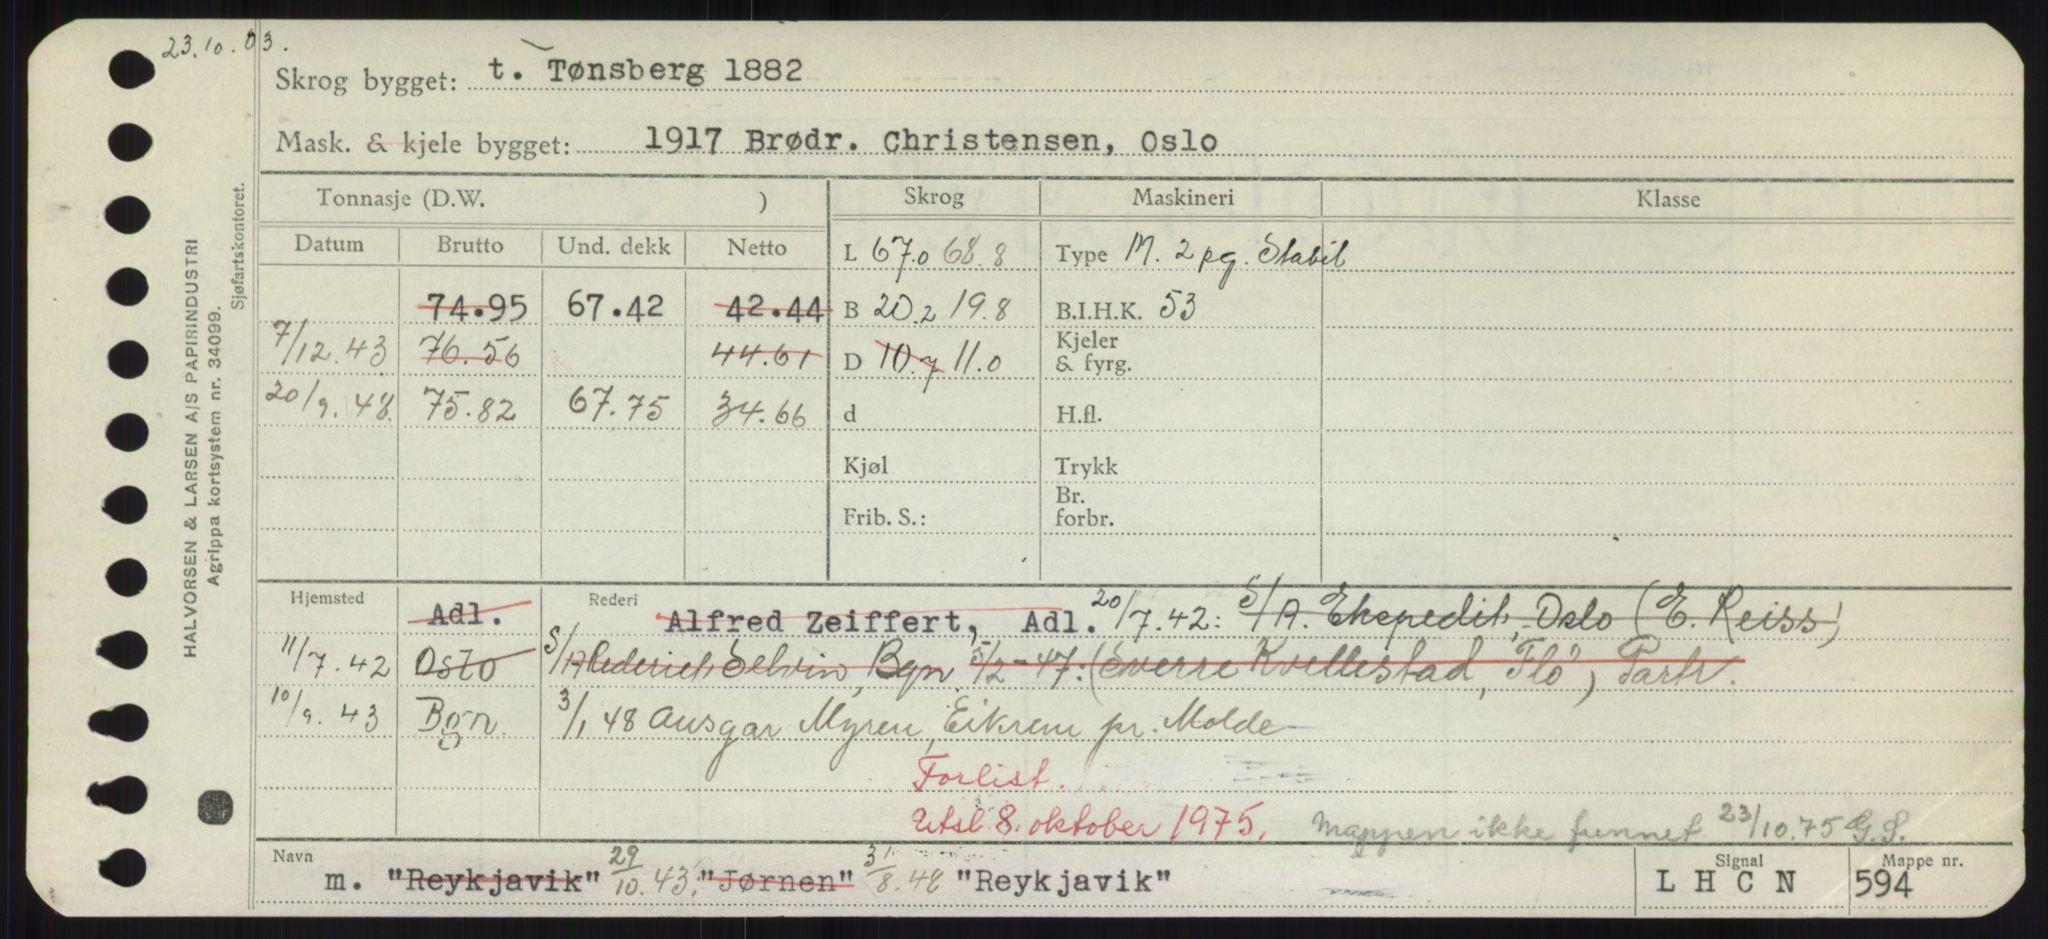 23.10.03.
Skrog bygget: t. Tønsberg 1882
Mask. & kjele bygget: 1917 Brødr. Christensen, Oslo
Tonnasje (D.W. ) Skrog Maskineri Klasse
Datum Brutto Und. dekk Netto L 67.0 68.8 Type M. 2 pg. Stabil
74.95 67.42 42.44 B 20.2 19.8 B.I.H.K. 53
7/12.43 76.56 44.61 D 10.7 11.0 Kjeler & fyrg.
20/9.48. 75.82 67.75 34.66 d H.fl.
Kjøl Trykk
Frib. S.: Br. forbr.
Hjemsted Adl. Rederi Alfred Zeiffert, Adl. 20/7.42: S/A. Ekspedit, Oslo (E. Reiss)
11/7.42 Oslo S/A Rederiet Selvin, Bgn. 5/2-47: (Sverre Kvellestad, Flø), Partr.
10/9.43 Bgn. 3/1 48 Ansgar Myren, Eikrem pr. Molde
Forlist.
Utsl. 8. oktober 1975. Mappen ikke funnet 23/10.75 G.S.
Navn m. "Reykjavik" 29/10.43. "Jørnen" 31/8.48 "Reykjavik" Signal L H C N Mappe nr. 594
HALVORSEN & LARSEN A/S PAPIRINDUSTRI
Agrippa kortsystem nr. 34099.
Sjøfartskontoret.